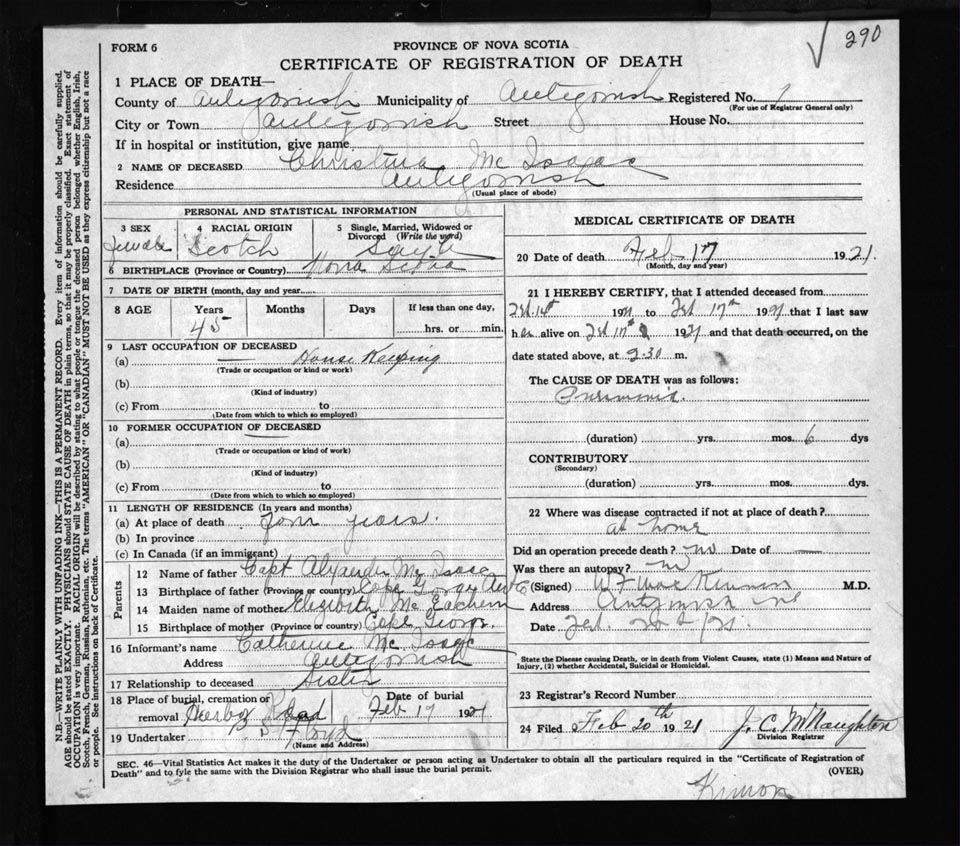 290
FORM 6
PROVINCE OF NOVA SCOTIA
CERTIFICATE OF REGISTRATION OF DEATH
N.B.—WRITE PLAINLY WITH UNFADING INK—THIS IS A PERMANENT RECORD. Every item of information should be carefully supplied.
AGE should be stated EXACTLY. PHYSICIANS should STATE CAUSE OF DEATH in plain terms, so that it may be properly classified. Exact statement of
OCCUPATION is very important. RACIAL ORIGIN will be described by stating to what people or tongue the deceased person belonged whether English, Irish,
Scotch, French, German, Russian, Ruthenian, etc. The terms "AMERICAN" OR "CANADIAN" MUST NOT BE USED as they express citizenship but not a race
or people. See instructions on back of Certificate.
1 PLACE OF DEATH—
County of Antigonish Municipality of Antigonish Registered No.
(For use of Registrar General only)
City or Town Antigonish Street House No.
If in hospital or institution, give name
2 NAME OF DECEASED Christina Mc Isaac
Residence Antigonish
(Usual place of abode)
PERSONAL AND STATISTICAL INFORMATION
3 SEX 4 RACIAL ORIGIN 5 Single, Married, Widowed or
Divorced (Write the word)
Female Scotch Single
6 BIRTHPLACE (Province or Country) Nova Scotia
7 DATE OF BIRTH (month, day and year)
8 AGE Years Months Days If less than one day,
45 hrs. or min.
9 LAST OCCUPATION OF DECEASED
(a) House Keeping
(Trade or occupation or kind or work)
(b)
(Kind of industry)
(c) From to
(Date from which to which so employed)
10 FORMER OCCUPATION OF DECEASED
(a)
(Trade or occupation or kind of work)
(b)
(Kind of industry)
(c) From to
(Date from which to which so employed)
11 LENGTH OF RESIDENCE (In years and months)
(a) At place of death four years.
(b) In province
(c) In Canada (if an immigrant)
Parents
12 Name of father Capt Alexander Mc Isaac
13 Birthplace of father (Province or country) Cape George
14 Maiden name of mother Mc Eachern
15 Birthplace of mother (Province or country) Cape George
16 Informant's name Catherine Mc Isaac
Address Antigonish
17 Relationship to deceased Sister
18 Place of burial, cremation or Date of burial
removal Feb 19 1921
19 Undertaker Floyd
(Name and Address)
MEDICAL CERTIFICATE OF DEATH
20 Date of death Feb 17 1921.
(Month, day and year)
21 I HEREBY CERTIFY, that I attended deceased from
Feb. 14th 1921 to Feb 17th 1921 that I last saw
her alive on Feb 17th 1921 and that death occurred, on the
date stated above, at 2.30 m.
The CAUSE OF DEATH was as follows:
Pneumonia.
(duration) yrs. mos. 6 dys
CONTRIBUTORY
(Secondary)
(duration) yrs. mos. dys
22 Where was disease contracted if not at place of death?
at home
Did an operation precede death? no Date of —
Was there an autopsy? no
(Signed) W F MacKinnon M.D.
Address Antigonish NS
Date Feb.
State the Disease causing Death, or in death from Violent Causes, state (1) Means and Nature of
Injury, (2) whether Accidental, Suicidal or Homicidal.
23 Registrar's Record Number
24 Filed Feb 20th 1921 J. C. McNaughton
Division Registrar
SEC. 46—Vital Statistics Act makes it the duty of the Undertaker or person acting as Undertaker to obtain all the particulars required in the "Certificate of Registration of
Death" and to fyle the same with the Division Registrar who shall issue the burial permit. (OVER)